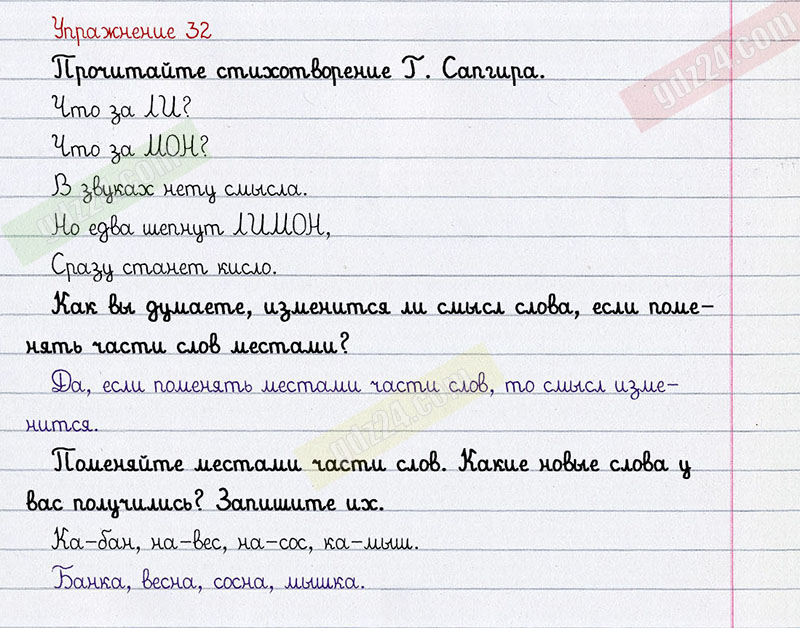 Упражнение 32
Прочитайте стихотворение Г. Сапгира.
Что за ЛИ?
Что за МОН?
В звуках нету смысла.
Но едва шепнут ЛИМОН,
Сразу станет кисло.
Как вы думаете, изменится ли смысл слова, если поме-
нять части слов местами?
Да, если поменять местами части слов, то смысл изме-
нится.
Поменяйте местами части слов. Какие новые слова у
вас получились? Запишите их.
Ка-бан, на-вес, на-сос, ка-мыш.
Банка, весна, сосна, мышка.
gdz24.com
gdz24.com
gdz24.com